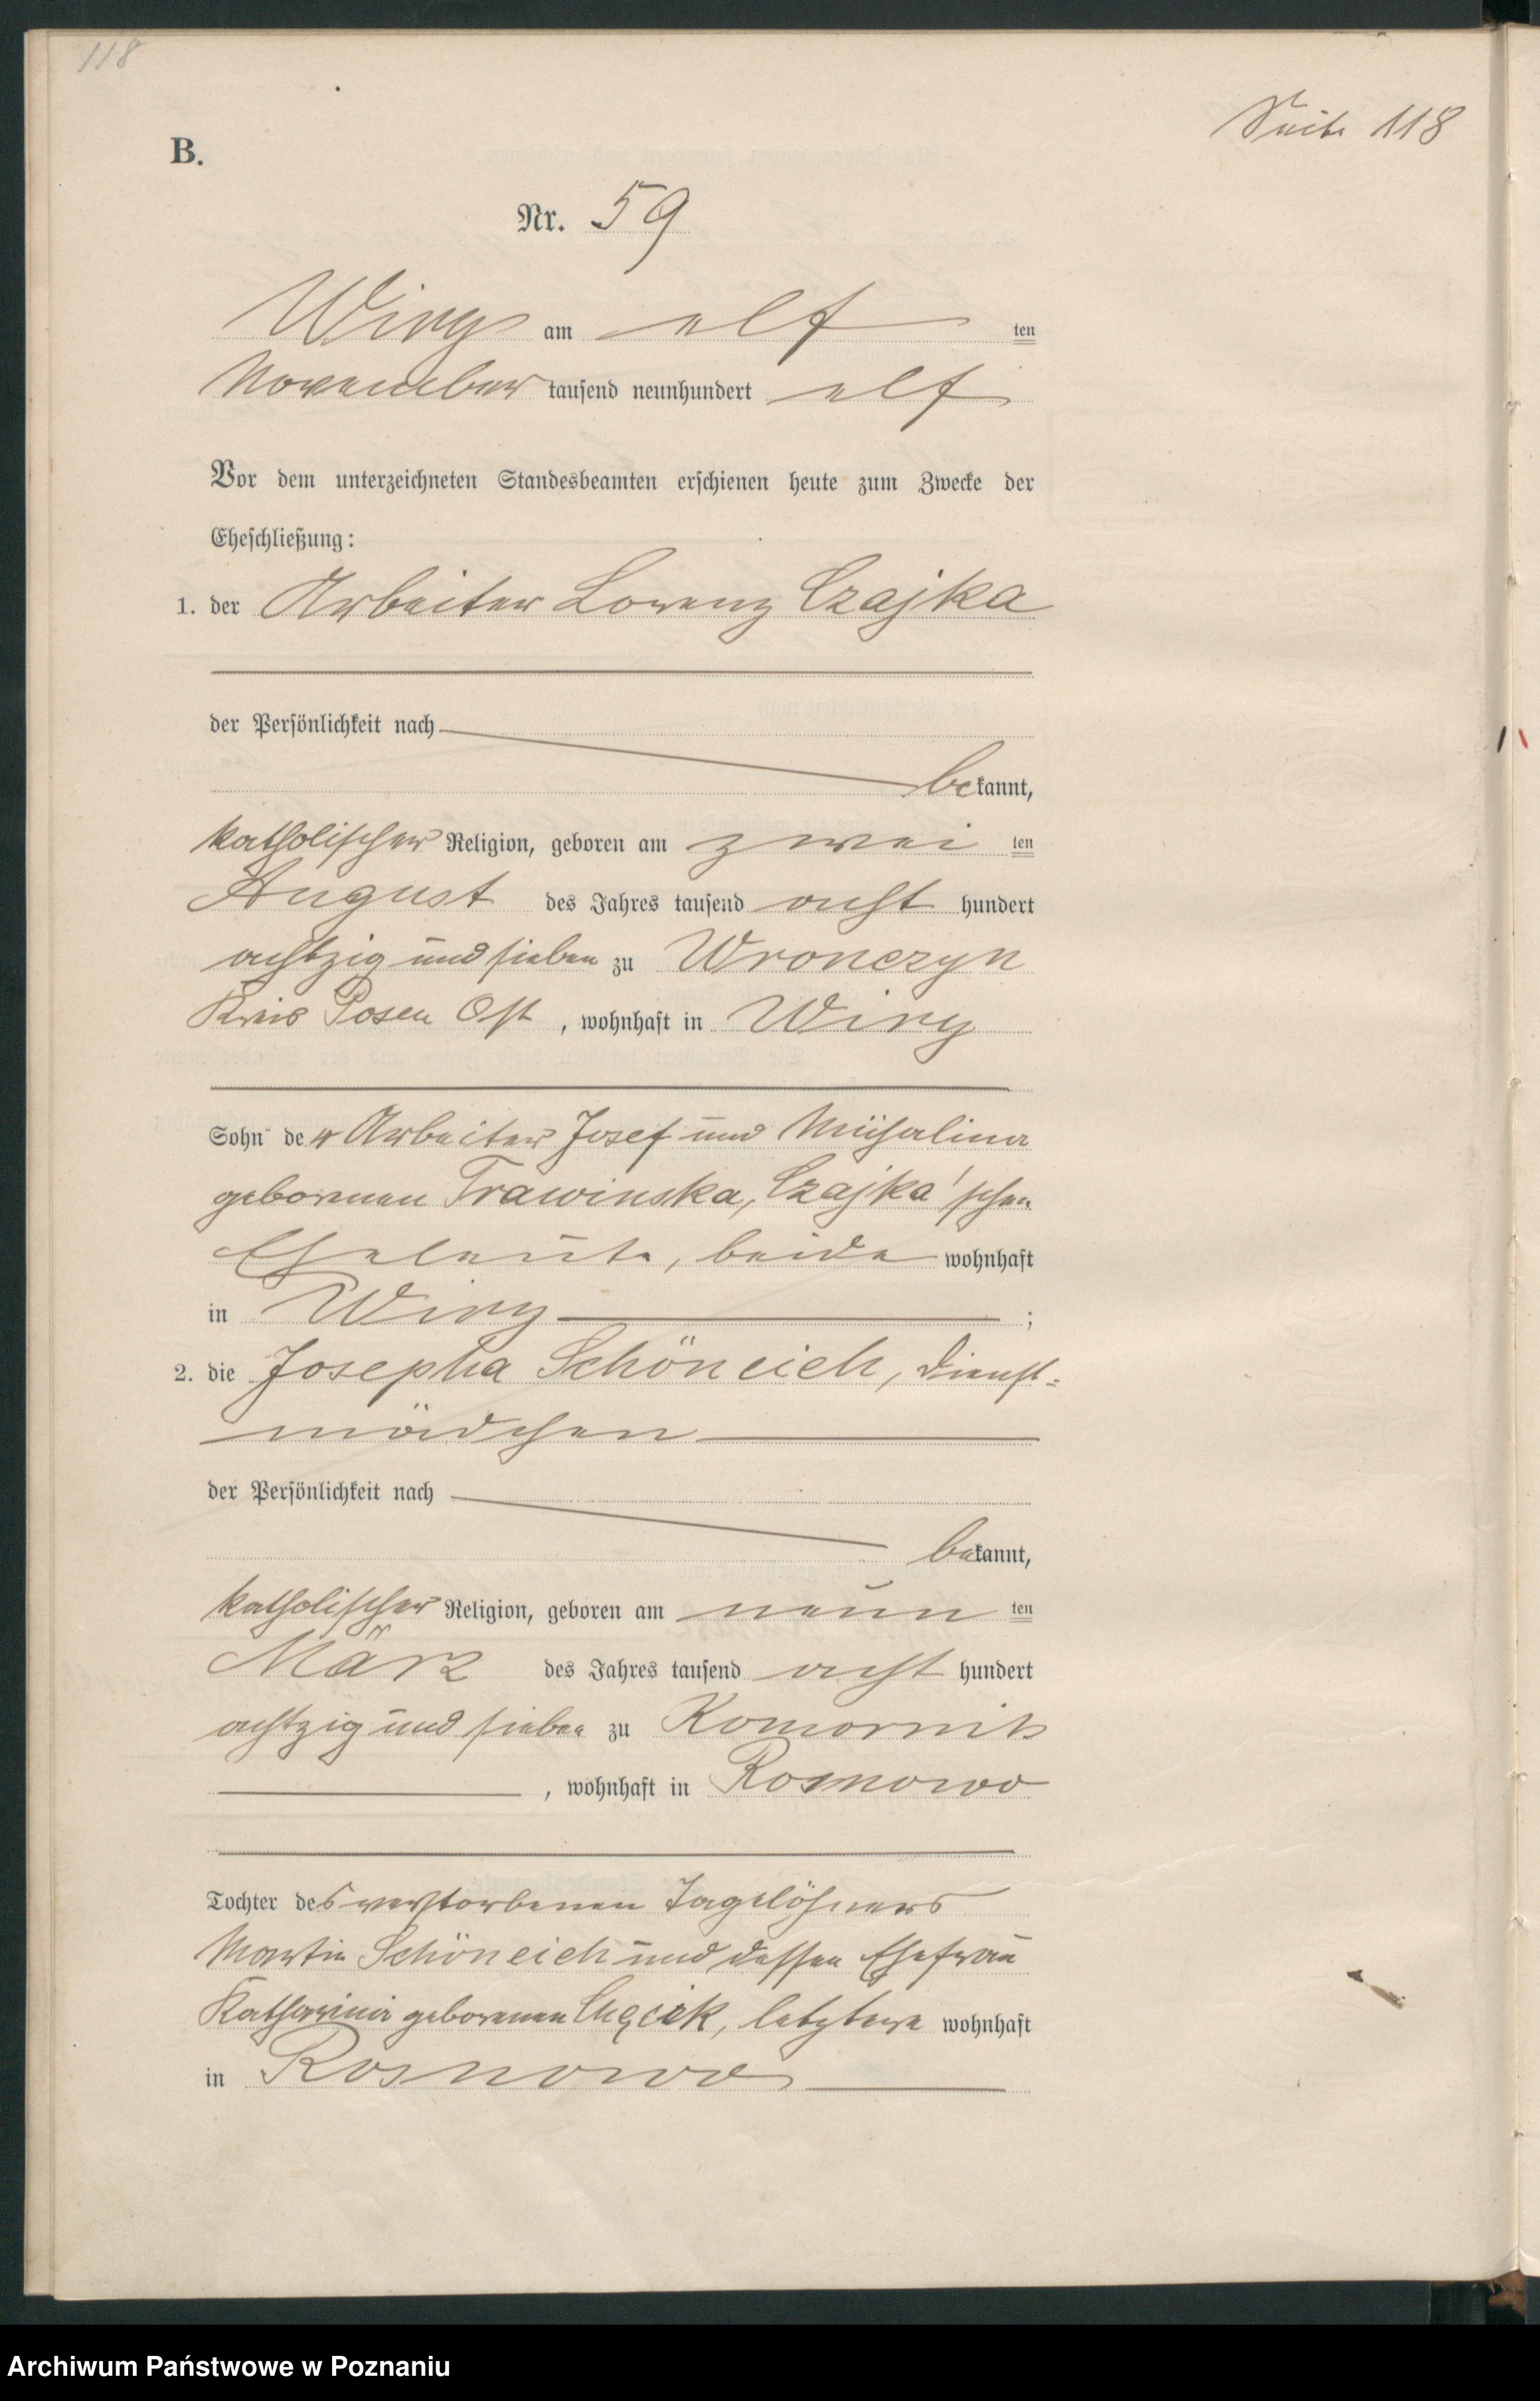 118
Seite 118
B.
Nr. 59
Wiry am elf ten
November tausend neunhundert elf
Vor dem unterzeichneten Standesbeamten erschienen heute zum Zwecke der
Eheschließung:
1. der Arbeiter Lorenz Czajka
der Persönlichkeit nach
bekannt,
katholischer Religion, geboren am zwei ten
August des Jahres tausend acht hundert
achtzig und sieben zu Wronczyn
Kreis Posen Ost, wohnhaft in Wiry
Sohn der Arbeiter Josef und Michalina
geborenen Trawinska, Czajka'schen
Eheleute, beide wohnhaft
in Wiry ;
2. die Josepha Schöneich, Dienst-
mädchen
der Persönlichkeit nach
bekannt,
katholischer Religion, geboren am neun ten
März des Jahres tausend acht hundert
achtzig und sieben zu Komornik
, wohnhaft in Rosnowo
Tochter des verstorbenen Tagelöhners
Martin Schöneich und dessen Ehefrau
Katharina geborenen letztere wohnhaft
in Rosnowo
Archiwum Państwowe w Poznaniu